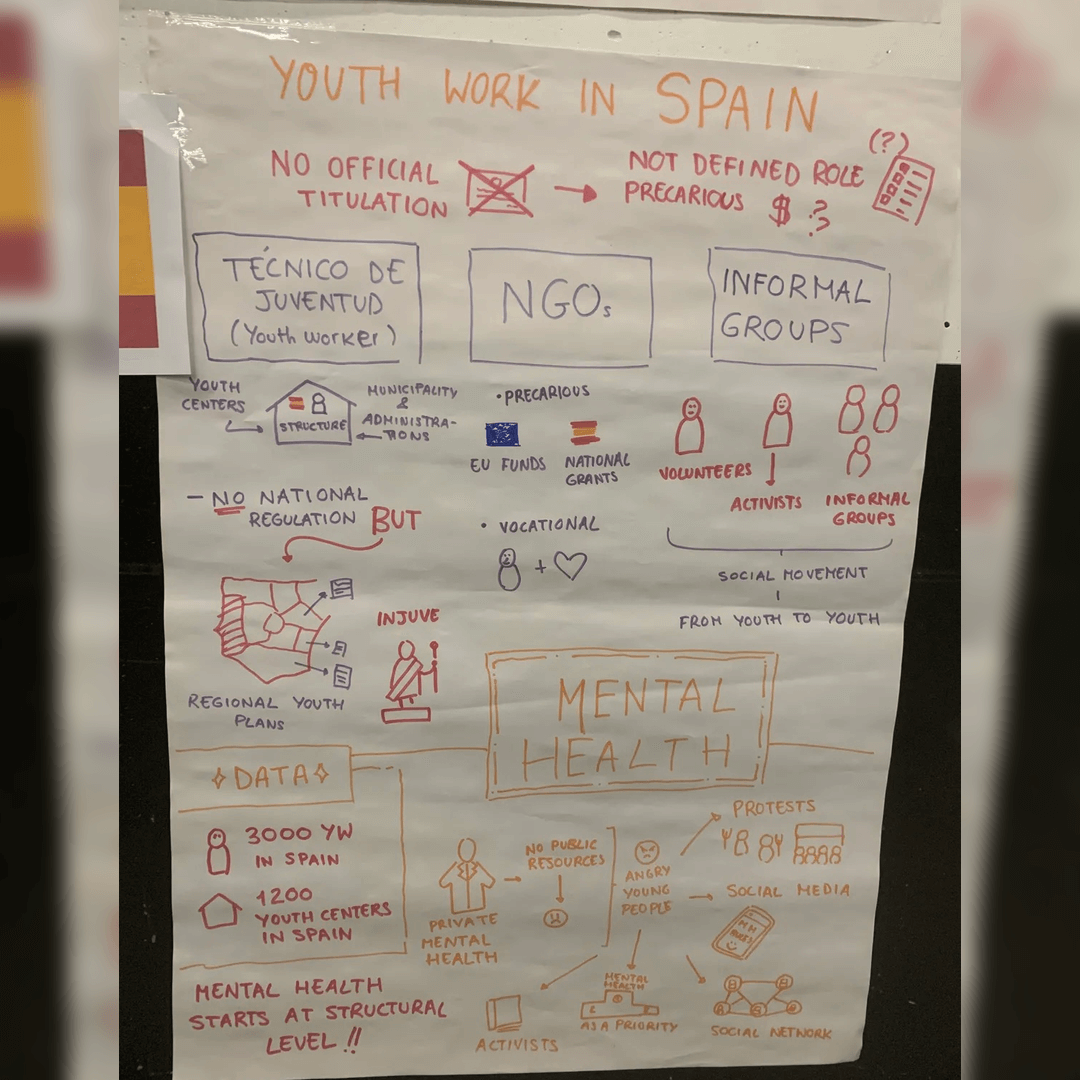 YOUTH WORK IN SPAIN
NO OFFICIAL
TITULATION
NOT DEFINED ROLE
PRECARIOUS $ ??
(?)
TÉCNICO DE
JUVENTUD
(Youth worker)
NGOs
INFORMAL
GROUPS
YOUTH
CENTERS
STRUCTURE
MUNICIPALITY
&
ADMINISTRA-
TIONS
- NO NATIONAL
REGULATION BUT
REGIONAL YOUTH
PLANS
INJUVE
• PRECARIOUS
EU FUNDS
NATIONAL
GRANTS
• VOCATIONAL
+
VOLUNTEERS
ACTIVISTS
INFORMAL
GROUPS
SOCIAL MOVEMENT
FROM YOUTH TO YOUTH
MENTAL
HEALTH
DATA
3000 YW
IN SPAIN
1200
YOUTH CENTERS
IN SPAIN
MENTAL HEALTH
STARTS AT STRUCTURAL
LEVEL !!
PRIVATE
MENTAL
HEALTH
NO PUBLIC
RESOURCES
ANGRY
YOUNG
PEOPLE
PROTESTS
SOCIAL MEDIA
SOCIAL NETWORK
MENTAL
HEALTH
AS A PRIORITY
ACTIVISTS